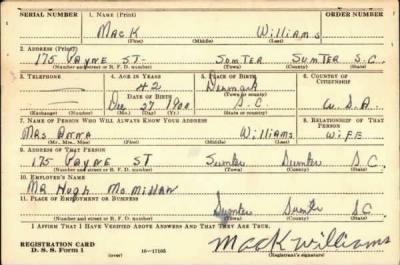 SERIAL NUMBER 1. NAME (Print) ORDER NUMBER
Mack Williams
(First) (Middle) (Last)
2. ADDRESS (Print)
175 Payne ST- Sumter Sumter S.C.
(Number and street or R. F. D. number) (Town) (County) (State)
3. TELEPHONE 4. AGE IN YEARS 5. PLACE OF BIRTH 6. COUNTRY OF CITIZENSHIP
42 Denmark
DATE OF BIRTH (Town or county)
Dec 27 1900 S.C. U.S.A.
(Exchange) (Number) (Mo.) (Day) (Yr.) (State or country)
7. NAME OF PERSON WHO WILL ALWAYS KNOW YOUR ADDRESS 8. RELATIONSHIP OF THAT PERSON
Mrs Anna Williams Wife
(Mr., Mrs., Miss) (First) (Middle) (Last)
9. ADDRESS OF THAT PERSON
175 Payne ST Sumter Sumter S.C.
(Number and street or R. F. D. number) (Town) (County) (State)
10. EMPLOYER'S NAME
Mr Hugh McMillan
11. PLACE OF EMPLOYMENT OR BUSINESS
Sumter Sumter S.C.
(Number and street or R. F. D. number) (Town) (County) (State)
I AFFIRM THAT I HAVE VERIFIED ABOVE ANSWERS AND THAT THEY ARE TRUE.
REGISTRATION CARD
D. S. S. Form 1 (over) 16—17105 Mack Williams
(Registrant's signature)